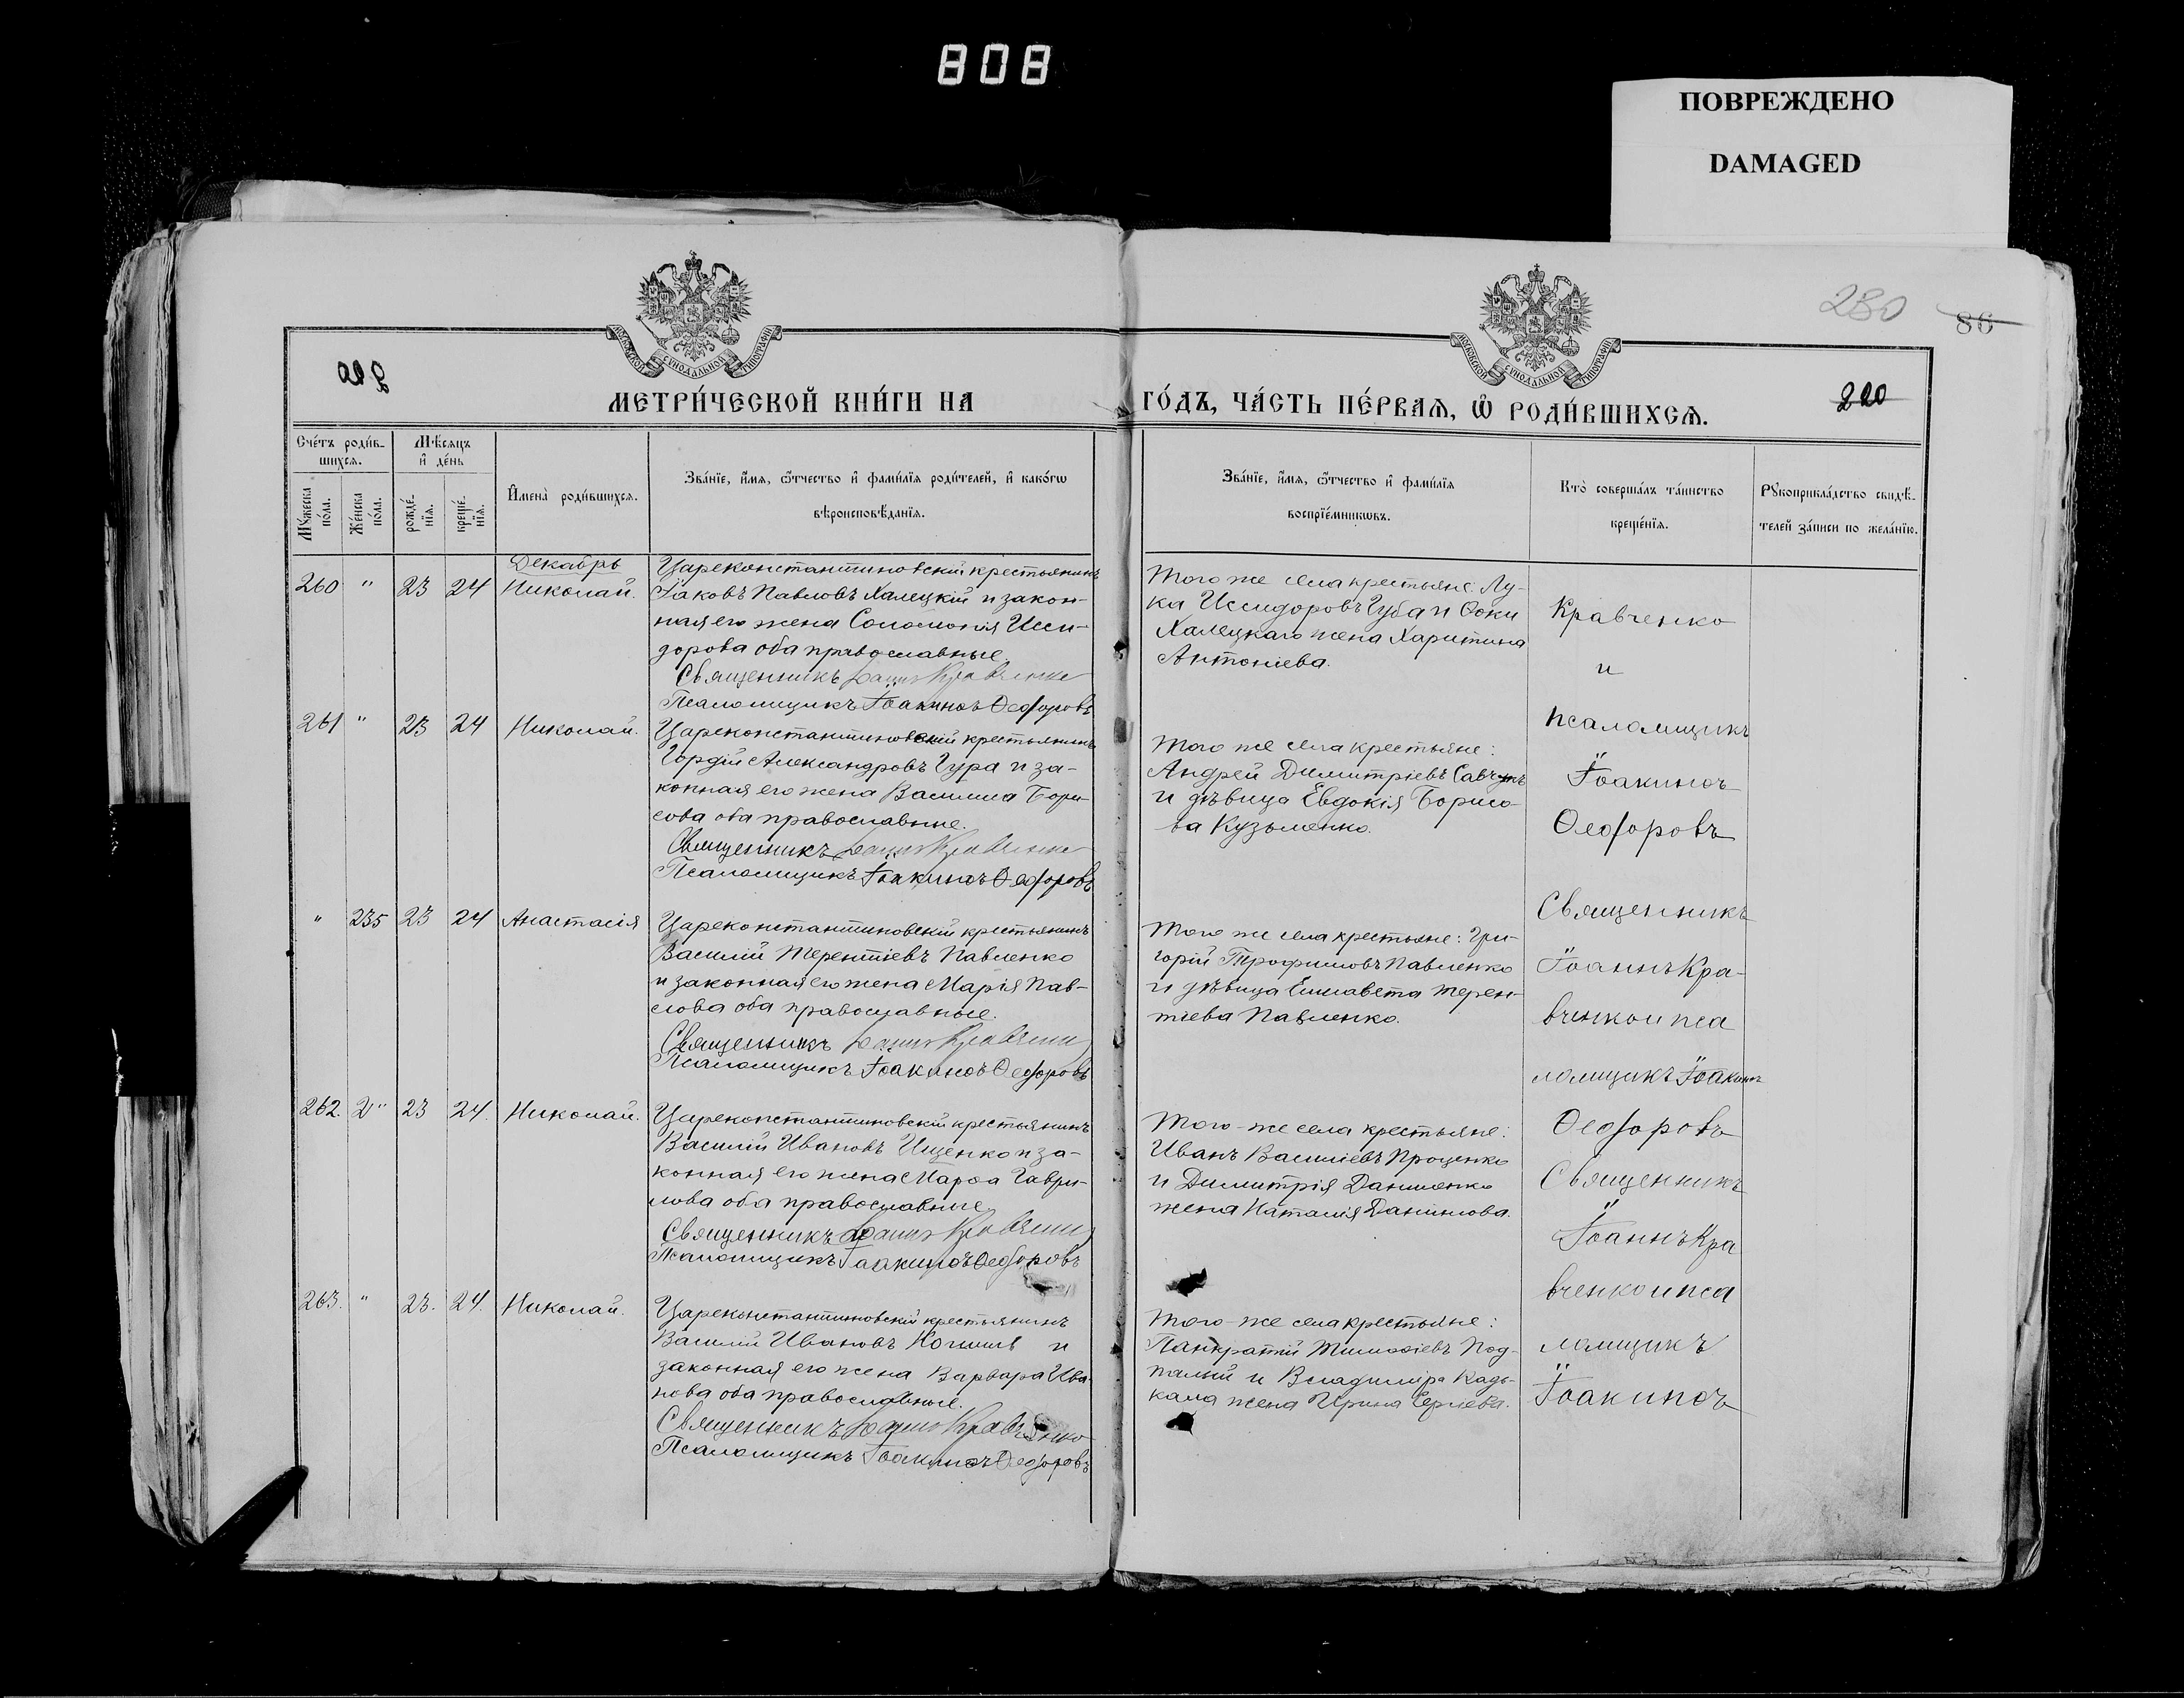 808
ПОВРЕЖДЕНО
DAMAGED
280
86
МОСКОВСКОЙ СѴНОДАЛЬНОЙ ТИПОГРАФІИ
МОСКОВСКОЙ СѴНОДАЛЬНОЙ ТИПОГРАФІИ
220
МЕТРИ́ЧЕСКОЙ КНИ́ГИ НА
ГО́ДЪ, ЧА́СТЬ ПЕ́РВАѦ, Ѡ҆ РОДИ́ВШИХСѦ.
Сче́тъ роди́в-
шихсѧ.
Мѣ́сѧцъ
и҆ де́нь
Мꙋ́жеска
по́ла.
Же́нска
по́ла.
рожде́-
нїѧ.
креще́-
нїѧ.
И҆мена̀ роди́вшихсѧ.
Зва́нїе, и҆́мѧ, ѻ҆́тчество и҆ фами́лїѧ роди́телей, и҆ како́гѡ
вѣроисповѣ́данїѧ.
Зва́нїе, и҆́мѧ, ѻ҆́тчество и҆ фами́лїѧ
воспрїе́мникѡвъ.
Кто̀ соверша́лъ та́инство
креще́нїѧ.
Рꙋкоприкла́дство свидѣ́-
телей за́писи по жела́нїю.
Декабрь
260 " 23 24 Николай.
Цареконстантиновскій крестьянинъ
Іаковъ Павловъ Халецкій и закон-
ная его жена Соломонія Иси-
дорова оба православные.
Священникъ Іоаннъ Кравченко
Псаломщикъ Іоакимъ Ѳеодоровъ
Того же села крестьяне: Лу-
ка Исидоровъ Губа и Ѳоки
Халецкаго жена Харитина
Антоніева.
Кравченко
и
псаломщикъ
Іоакимъ
Ѳеодоровъ
261 " 23 24 Николай.
Цареконстантиновскій крестьянинъ
Гордій Александровъ Гура и за-
конная его жена Василиса Бори-
сова оба православные.
Священникъ Іоаннъ Кравченко
Псаломщикъ Іоакимъ Ѳеодоровъ
Того же села крестьяне:
Андрей Димитріевъ
и дѣвица Евдокія Борисо-
ва Кузьменко.
" 235 23 24 Анастасія
Цареконстантиновскій крестьянинъ
Василій Терентіевъ Павленко
и законная его жена Марія Пав-
лова оба православные.
Священникъ Іоаннъ Кравченко
Псаломщикъ Іоакимъ Ѳеодоровъ
Того же села крестьяне: Гри-
горій Трофимовъ Павленко
и дѣвица Елисавета Терен-
тіева Павленко.
Священникъ
Іоаннъ Кра-
вченко и пса
ломщикъ Іоакимъ
Ѳеодоровъ
262. " 23 24. Николай.
Цареконстантиновскій крестьянинъ
Василій Ивановъ Ищенко и за-
конная его жена Марѳа Гаври-
лова оба православные.
Священникъ Іоаннъ Кравченко
Псаломщикъ Іоакимъ Ѳеодоровъ
Того-же села крестьяне:
Иванъ Василіевъ Проценко
и Димитрія Даниленко
жена Наталія Данилова.
Священникъ
Іоаннъ Кра
вченко и пса
ломщикъ
Іоакимъ
263. " 23. 24. Николай.
Цареконстантиновскій крестьянинъ
Василій Ивановъ и
законная его жена Варвара Ива-
нова оба православные.
Священникъ Іоаннъ Кравченко
Псаломщикъ Іоакимъ Ѳеодоровъ
Того-же села крестьяне:
Панкратій Тимоѳіевъ Под-
палый и Владиміра Кадь-
кала жена Ирина Сергіева.